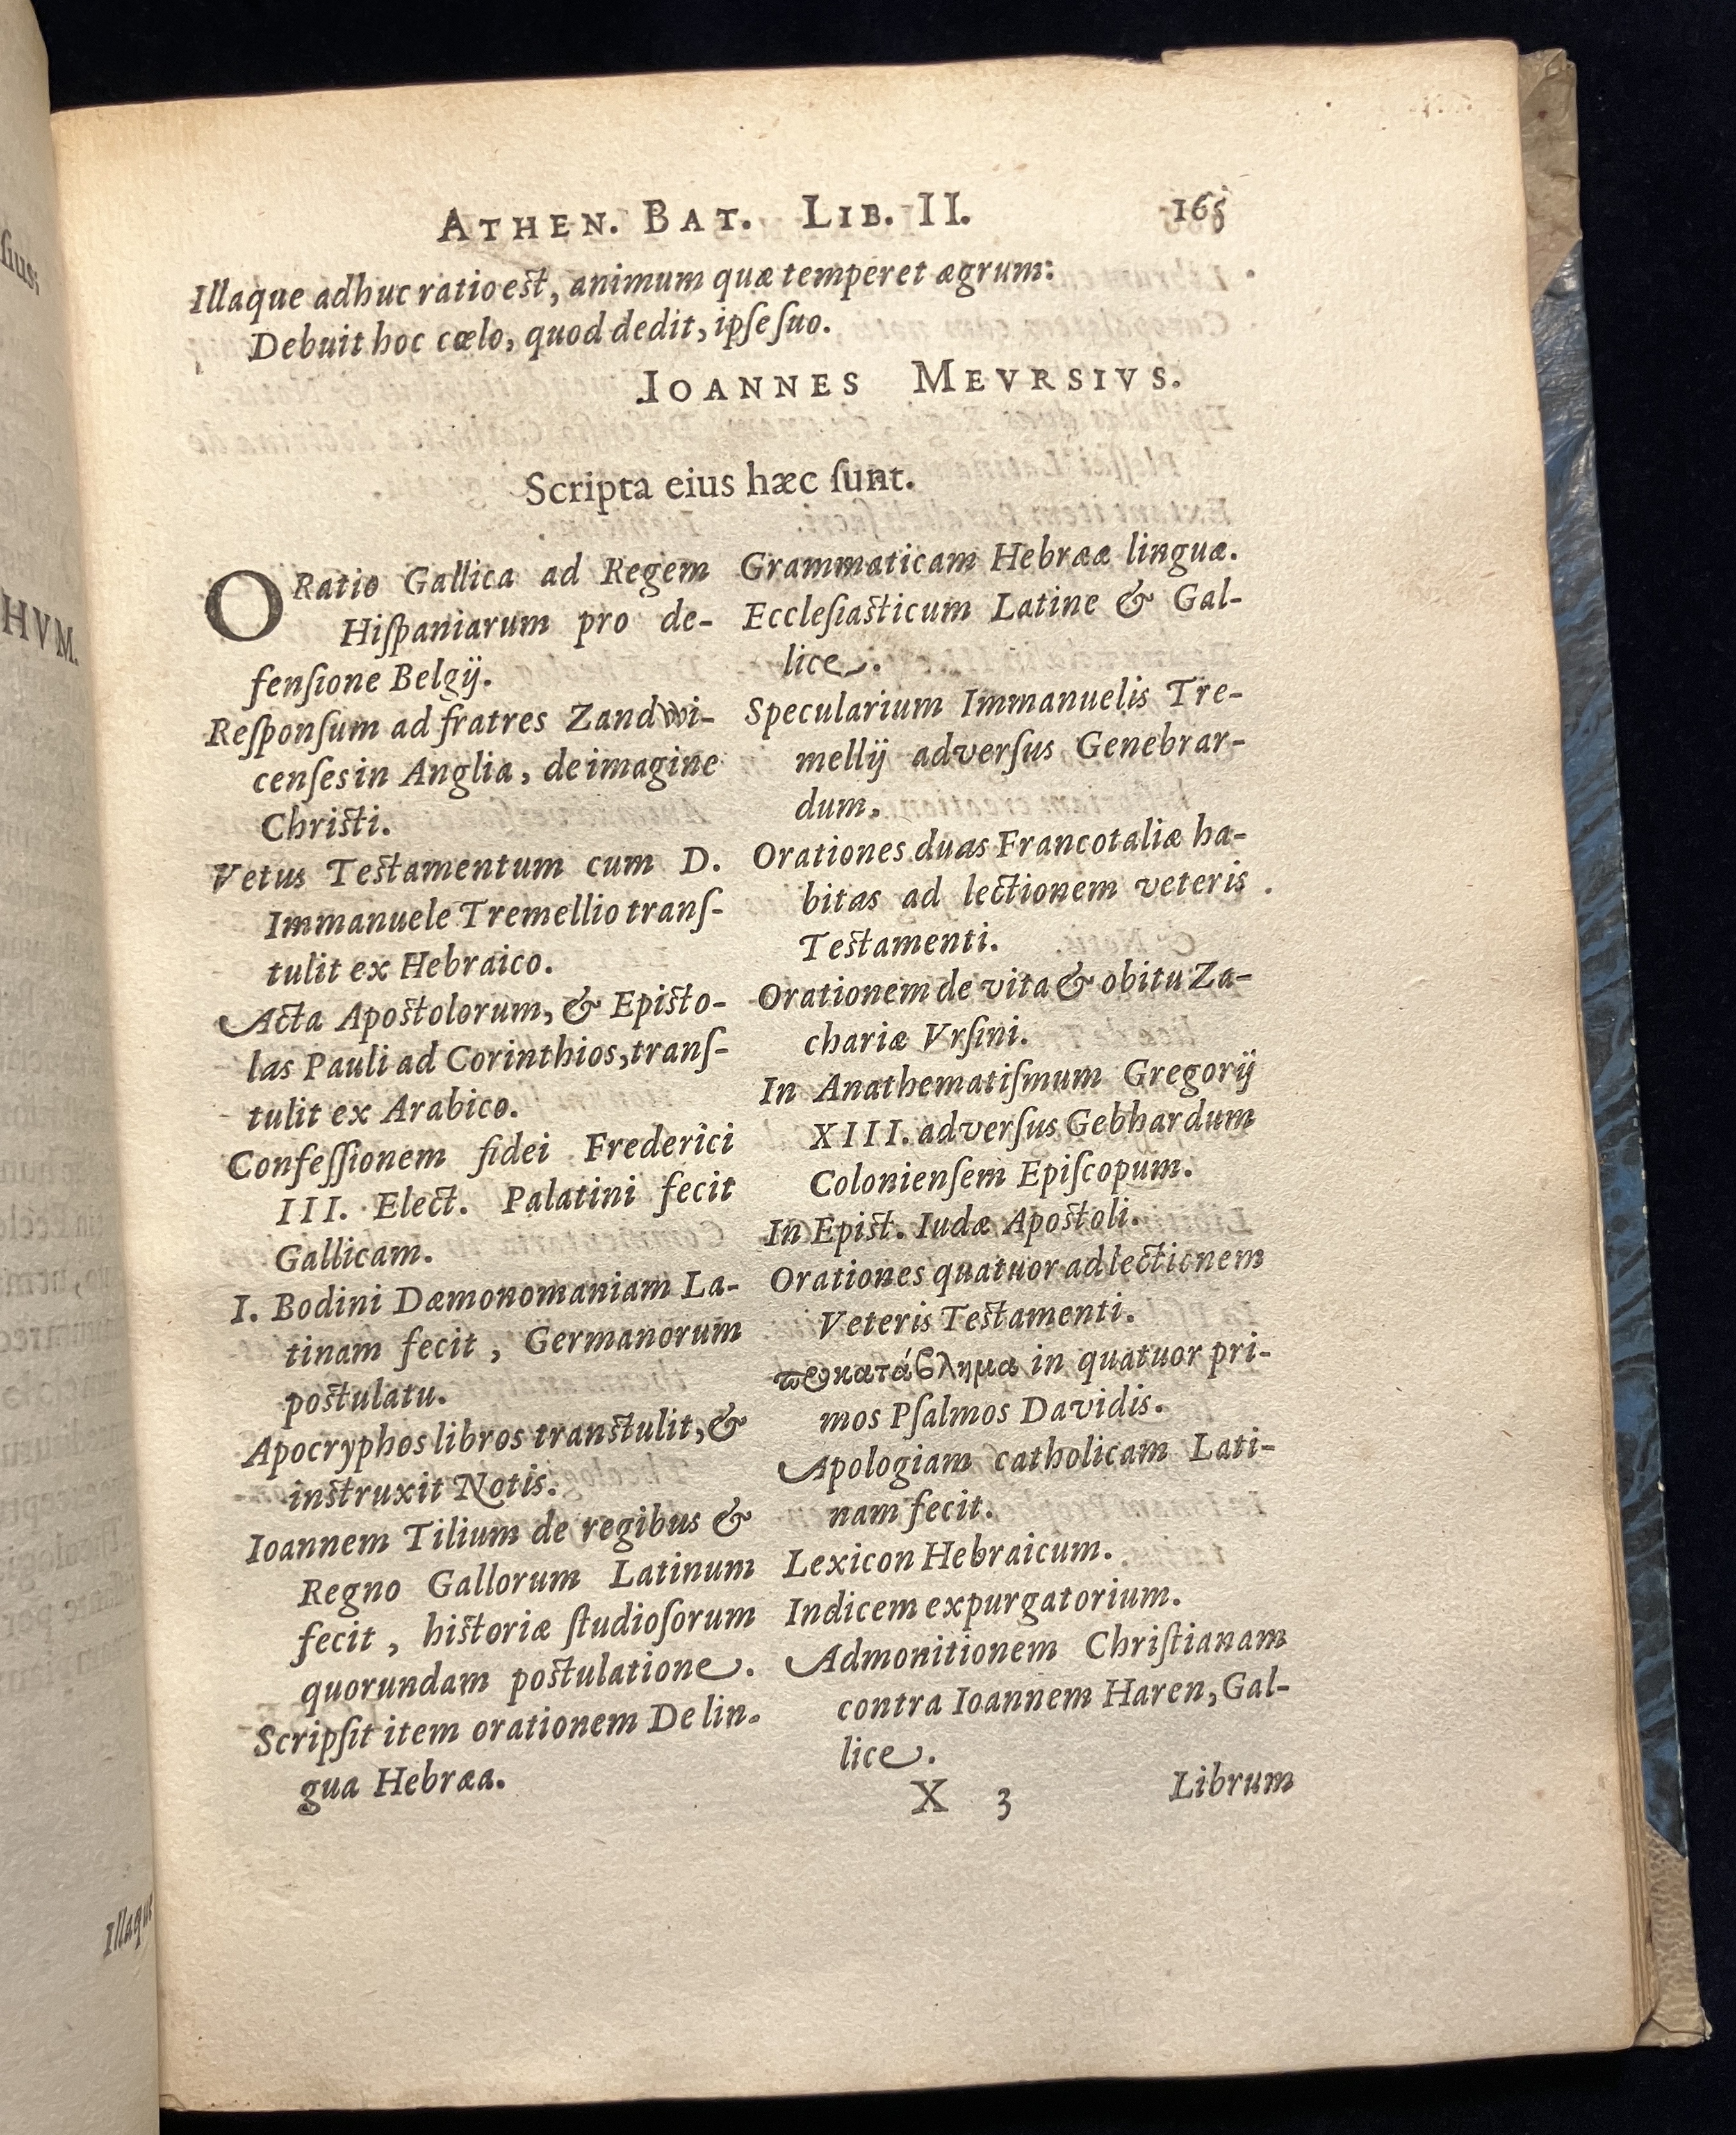 ATHEN. BAT. LIB. II. 165
Illaque adhuc ratio est, animum quæ temperet ægrum:
Debuit hoc cœlo, quod dedit, ipse suo.
IOANNES MEVRSIVS.
Scripta eius hæc ſunt.
ORatio Gallica ad Regem
Hiſpaniarum pro de-
fenſione Belgij.
Reſponſum ad fratres Zandwi-
cenſes in Anglia, de imagine
Christi.
Vetus Testamentum cum D.
Immanuele Tremellio tranſ-
tulit ex Hebraico.
Acta Apostolorum, & Episto-
las Pauli ad Corinthios, tranſ-
tulit ex Arabico.
Confeſſionem fidei Frederici
III. Elect. Palatini fecit
Gallicam.
I. Bodini Dæmonomaniam La-
tinam fecit, Germanorum
postulatu.
Apocryphos libros transtulit, &
instruxit Notis.
Ioannem Tilium de regibus &
Regno Gallorum Latinum
fecit, historiæ ſtudioſorum
quorundam postulatione.
Scripſit item orationem De lin-
gua Hebræa.
Grammaticam Hebrææ linguæ.
Eccleſiasticum Latine & Gal-
lice.
Specularium Immanuelis Tre-
mellij adverſus Genebrar-
dum.
Orationes duas Francotaliæ ha-
bitas ad lectionem veteris
Testamenti.
Orationem de vita & obitu Za-
chariæ Vrſini.
In Anathematiſmum Gregorij
XIII. adverſus Gebhardum
Colonienſem Epiſcopum.
In Epist. Iudæ Apostoli.
Orationes quatuor ad lectionem
Veteris Testamenti.
προκατάβλημα in quatuor pri-
mos Pſalmos Davidis.
Apologiam catholicam Lati-
nam fecit.
Lexicon Hebraicum.
Indicem expurgatorium.
Admonitionem Chriſtianam
contra Ioannem Haren, Gal-
lice.
X 3 Librum
HVM.
Illaque